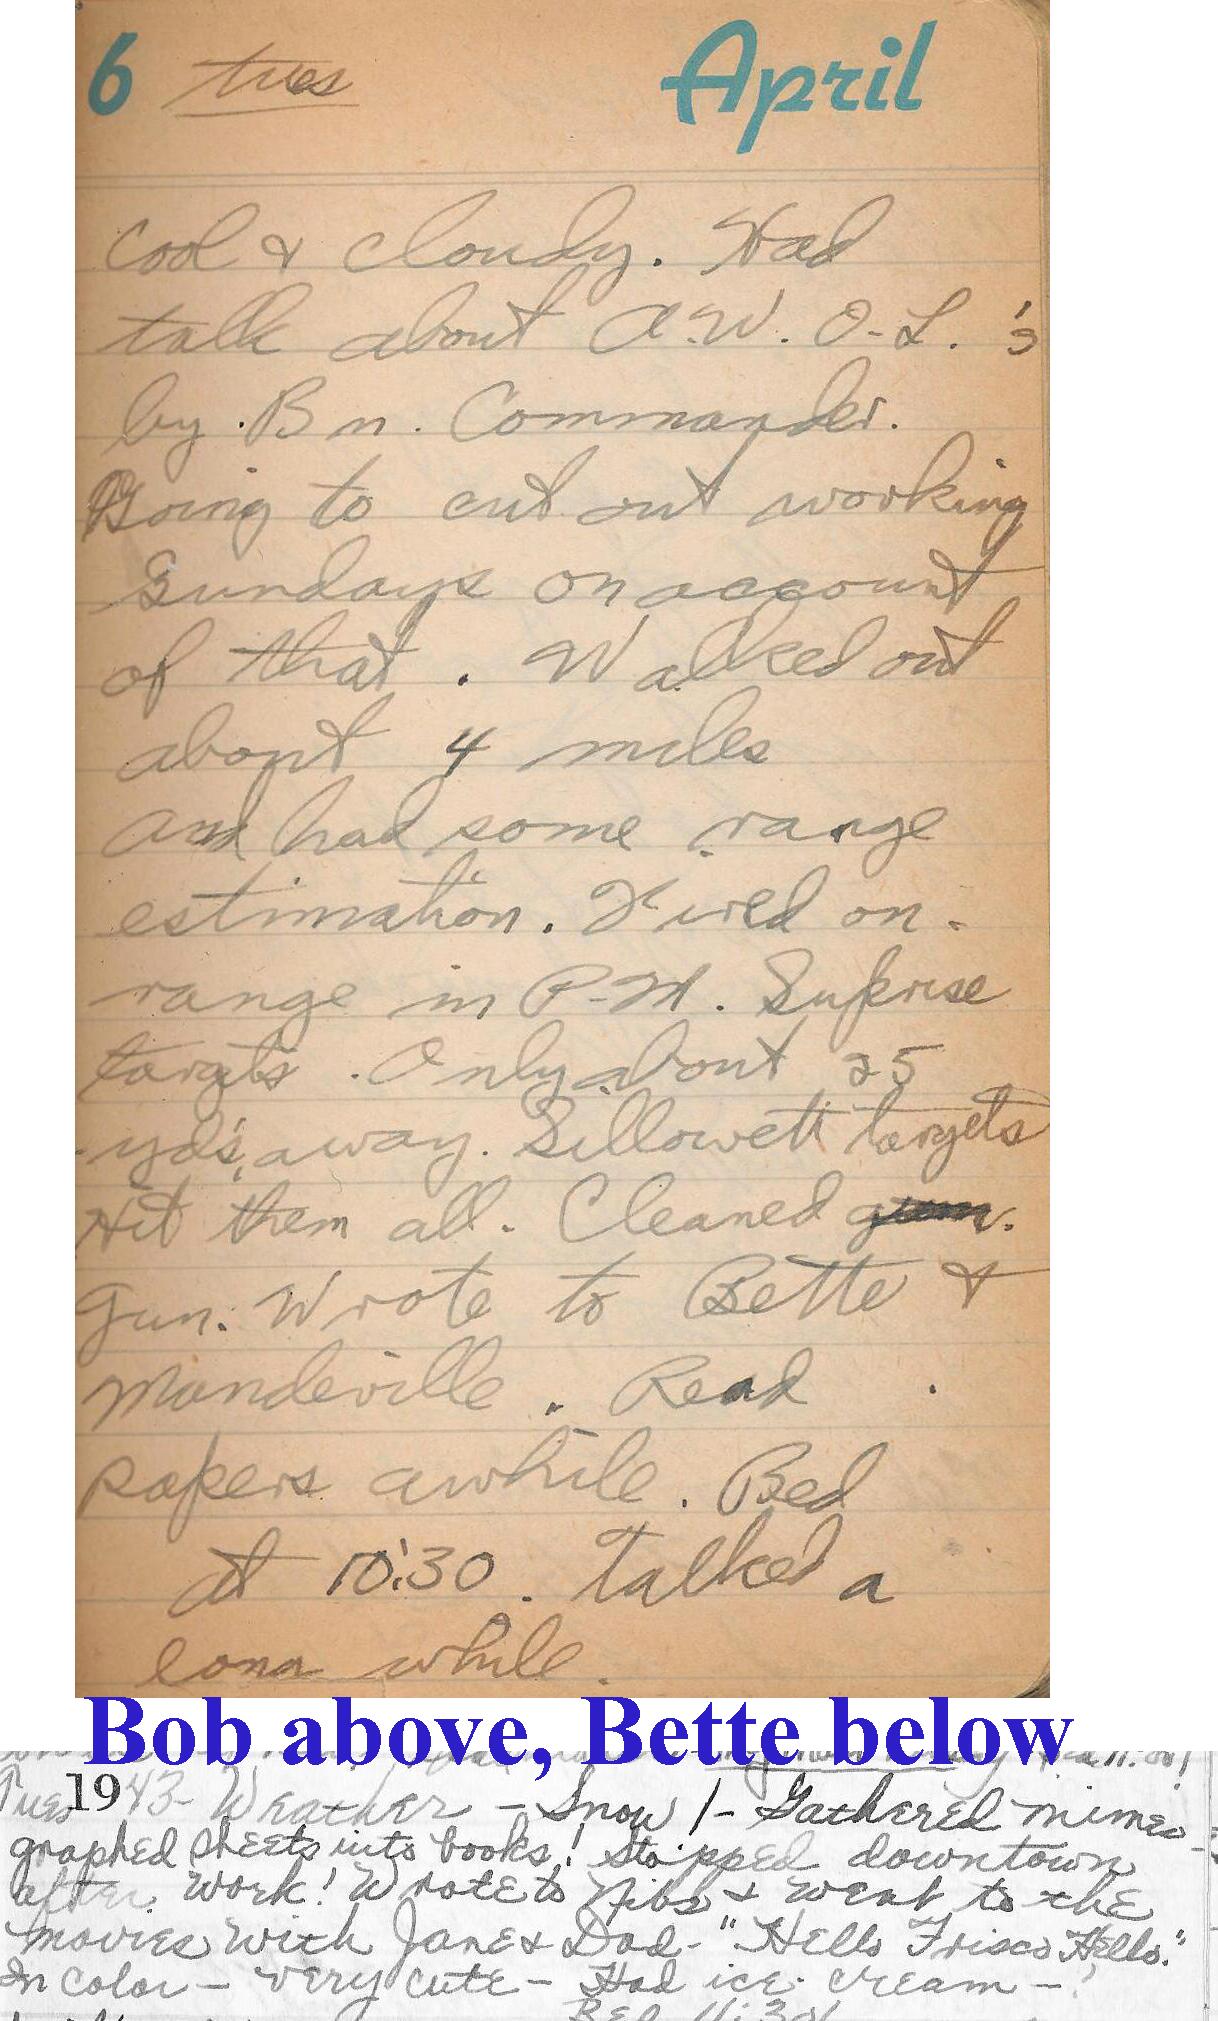 6 tues April
Cool & cloudy. Had
talk about A.W.O-L.'s
by Bn. Commander.
Going to cut out working
Sundays on account
of that. Walked out
about 4 miles
and had some range
estimation. Fired on
range in P-M. Suprise
targets. Only about 25
yds, away. Sillowett targets
Hit them all. Cleaned
gun. Wrote to Bette &
Mandeville. Read
papers awhile. Bed
at 10:30. talked a
while.
Bob above, Bette below
Tues 1943- Weather - Snow!- Gathered mimeo-
graphed sheets into books! Stopped downtown
after work! Wrote to Nibs & went to the
movies with Jane & Dad- "Hello Frisco Hello."
In color - very cute - Had ice cream -!
Bed 11:30